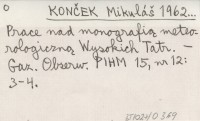 0
KONČEK Mikuláš 1962...
Prace nad monografią meteo-
rologiczną Wysokich Tatr. –
Gaz. Obserw. PIHM 15, nr 12:
3-4.